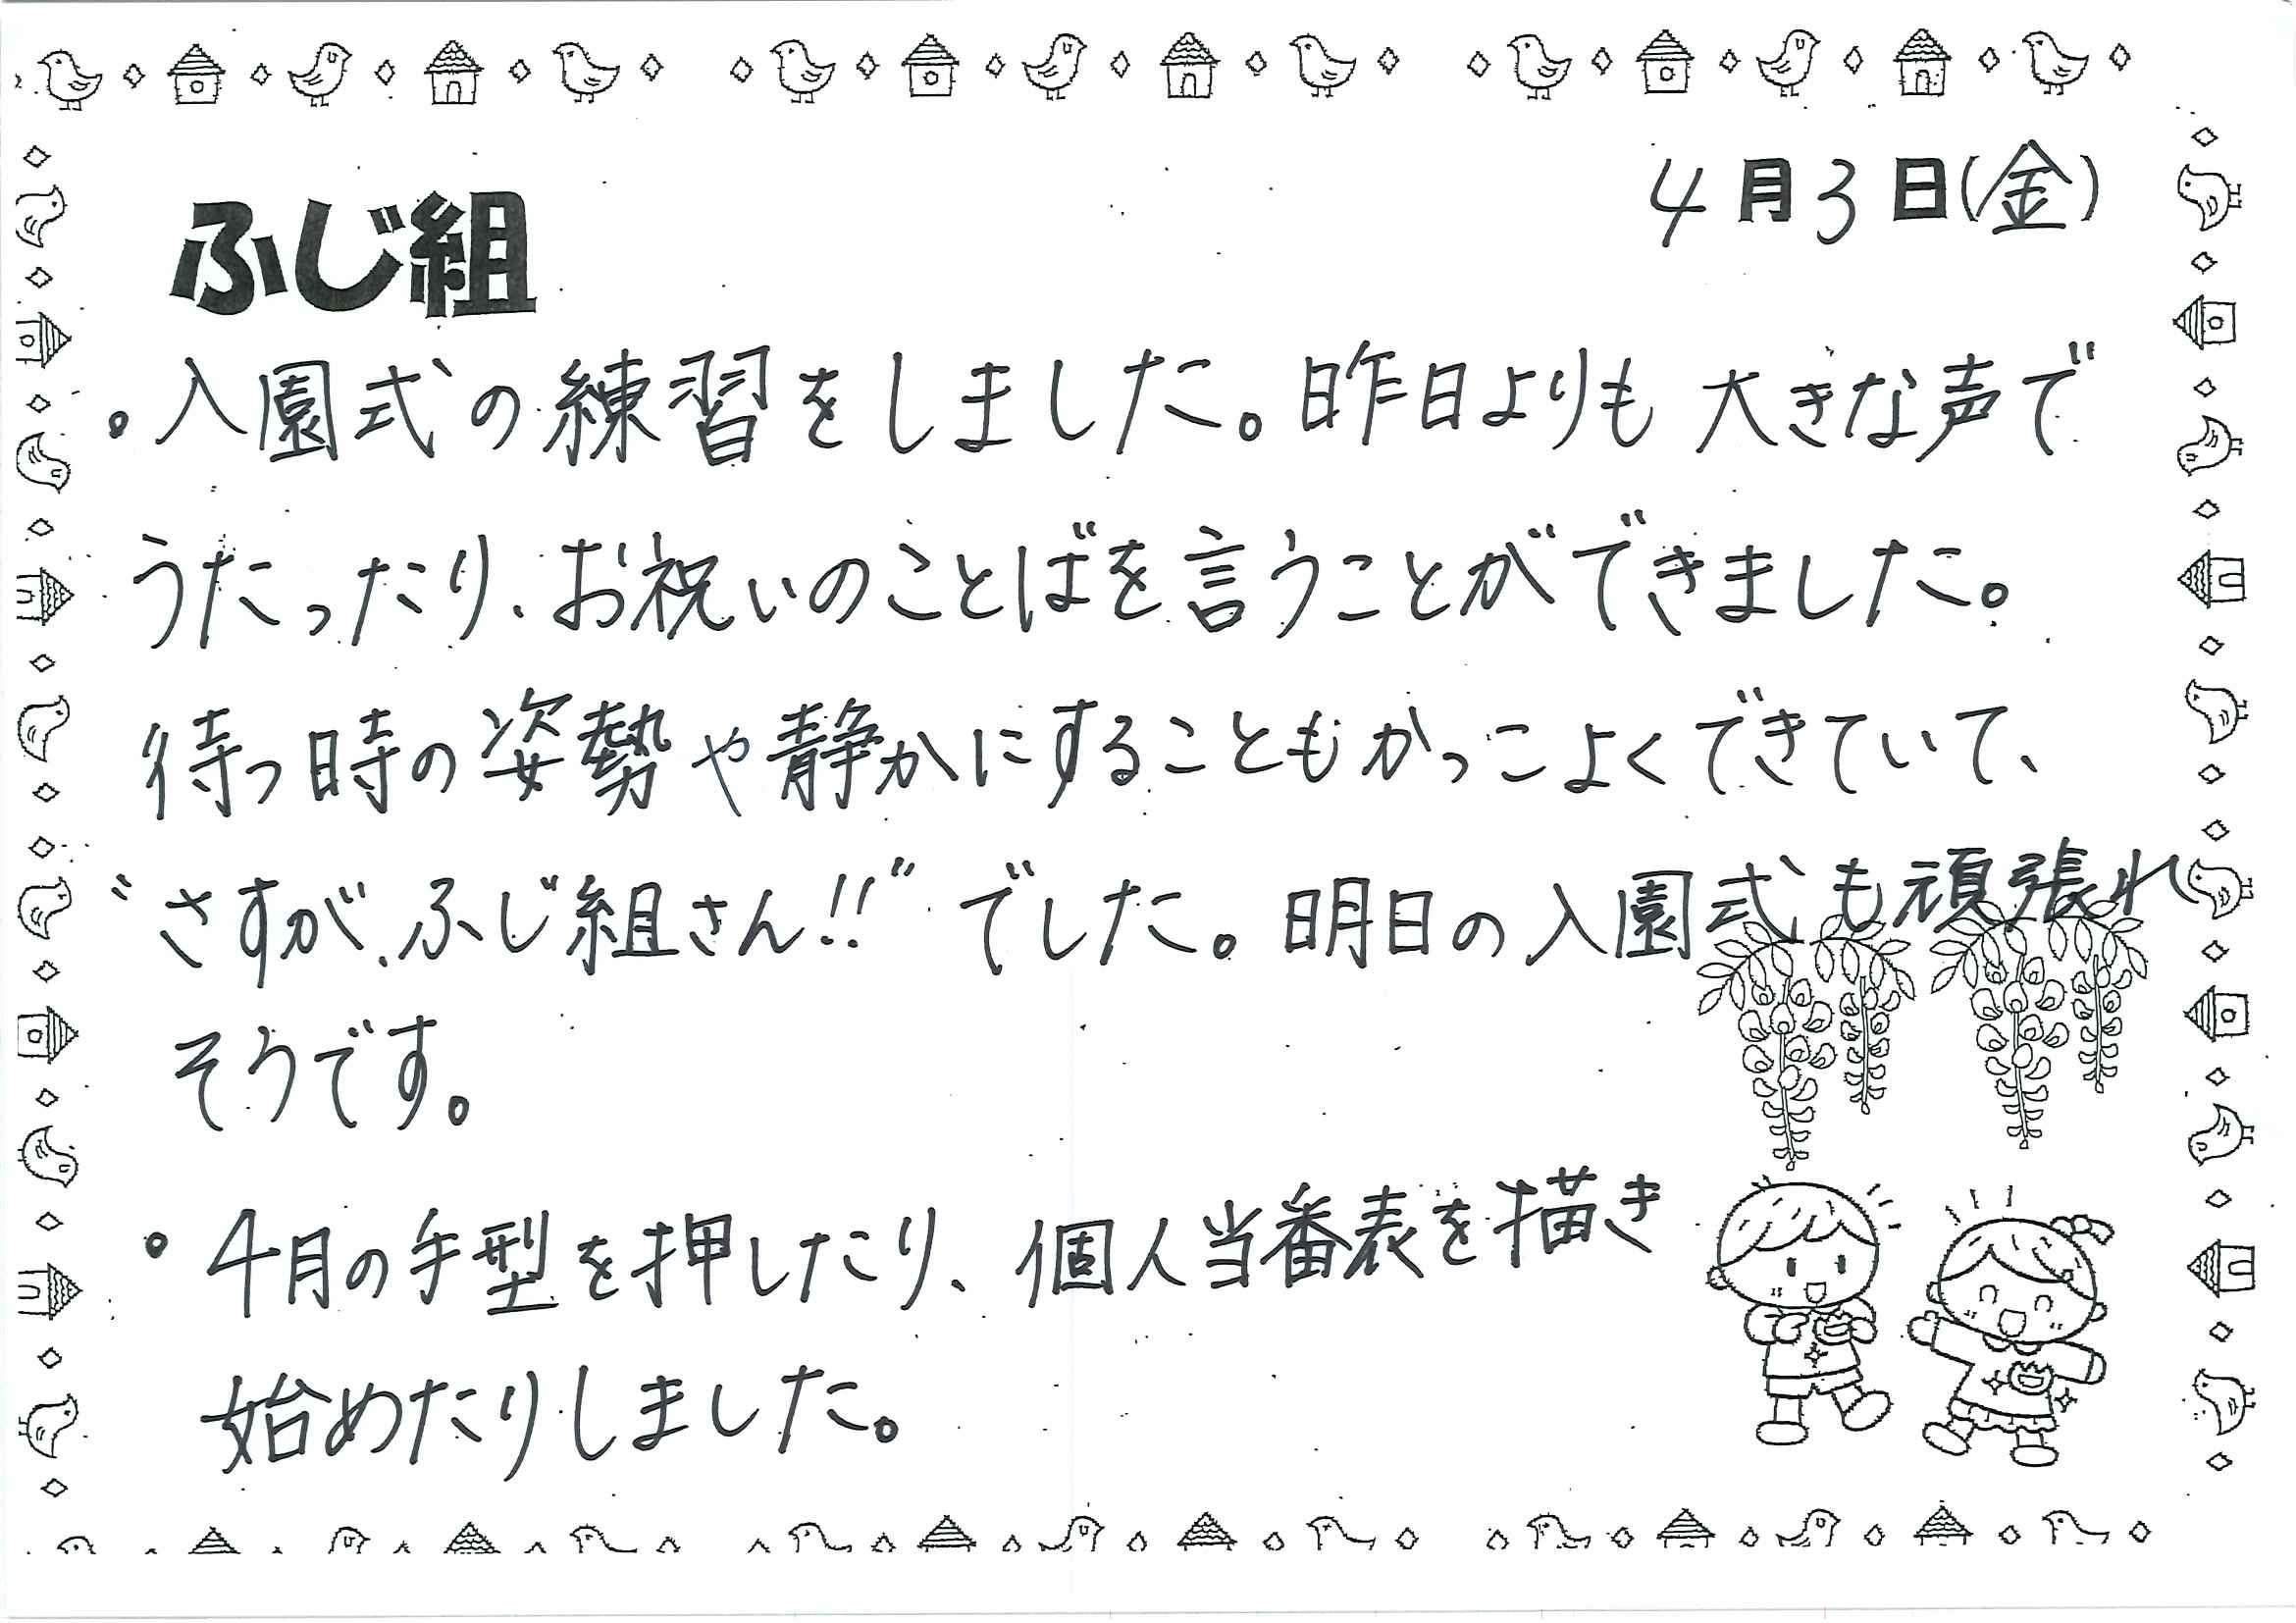 4月3日(金)
ふじ組
。入園式の練習をしました。昨日よりも大きな声で
うたったり、お祝いのことばを言うことができました。
待つ時の姿勢や静かにすることもかっこよくできていて、
“さすが、ふじ組さん!!”でした。明日の入園式も頑張れ
そうです。
。4月の手型を押したり、個人当番表を描き
始めたりしました。